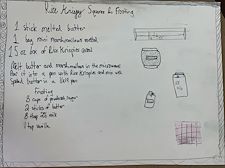 Rice Krispy Squares & Frosting
1 stick melted butter
1 bag mini marshmallows melted
1 5 oz box of Rice Krispies cereal
Melt butter and marshmallows in the microwave
Put it into a pan with Rice Krispies and mix well
Spread butter in a 13x9 pan
Frosting
3 cups of powdered sugar
2 sticks of butter
3 tbsp milk
1 tsp vanilla